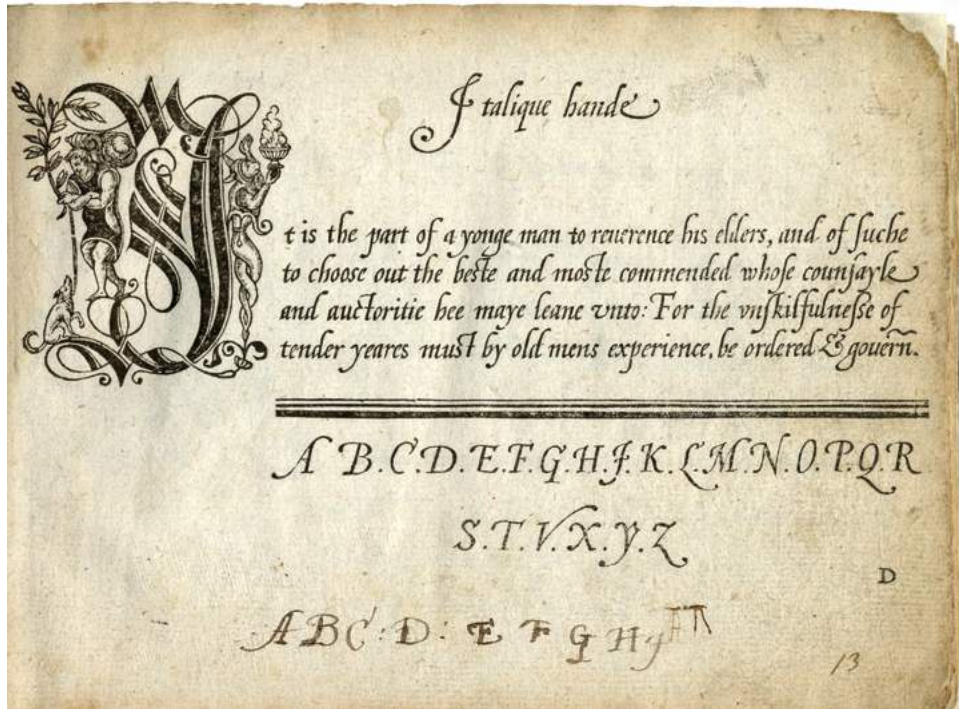 Italique hande
It is the part of a yonge man to reuerence his elders, and of ſuche
to chooſe out the beſte and moſte commended whoſe counſayle
and auctoritie hee maye leane vnto: For the vnſkilfulneſſe of
tender yeares muſt by old mens experience, be ordered & gouern̄.
A B.C.D.E.F.G.H.J.K.L.M.N.O.P.Q.R
S.T.V.X.Y.Z
D
ABC:D: E F G H
13